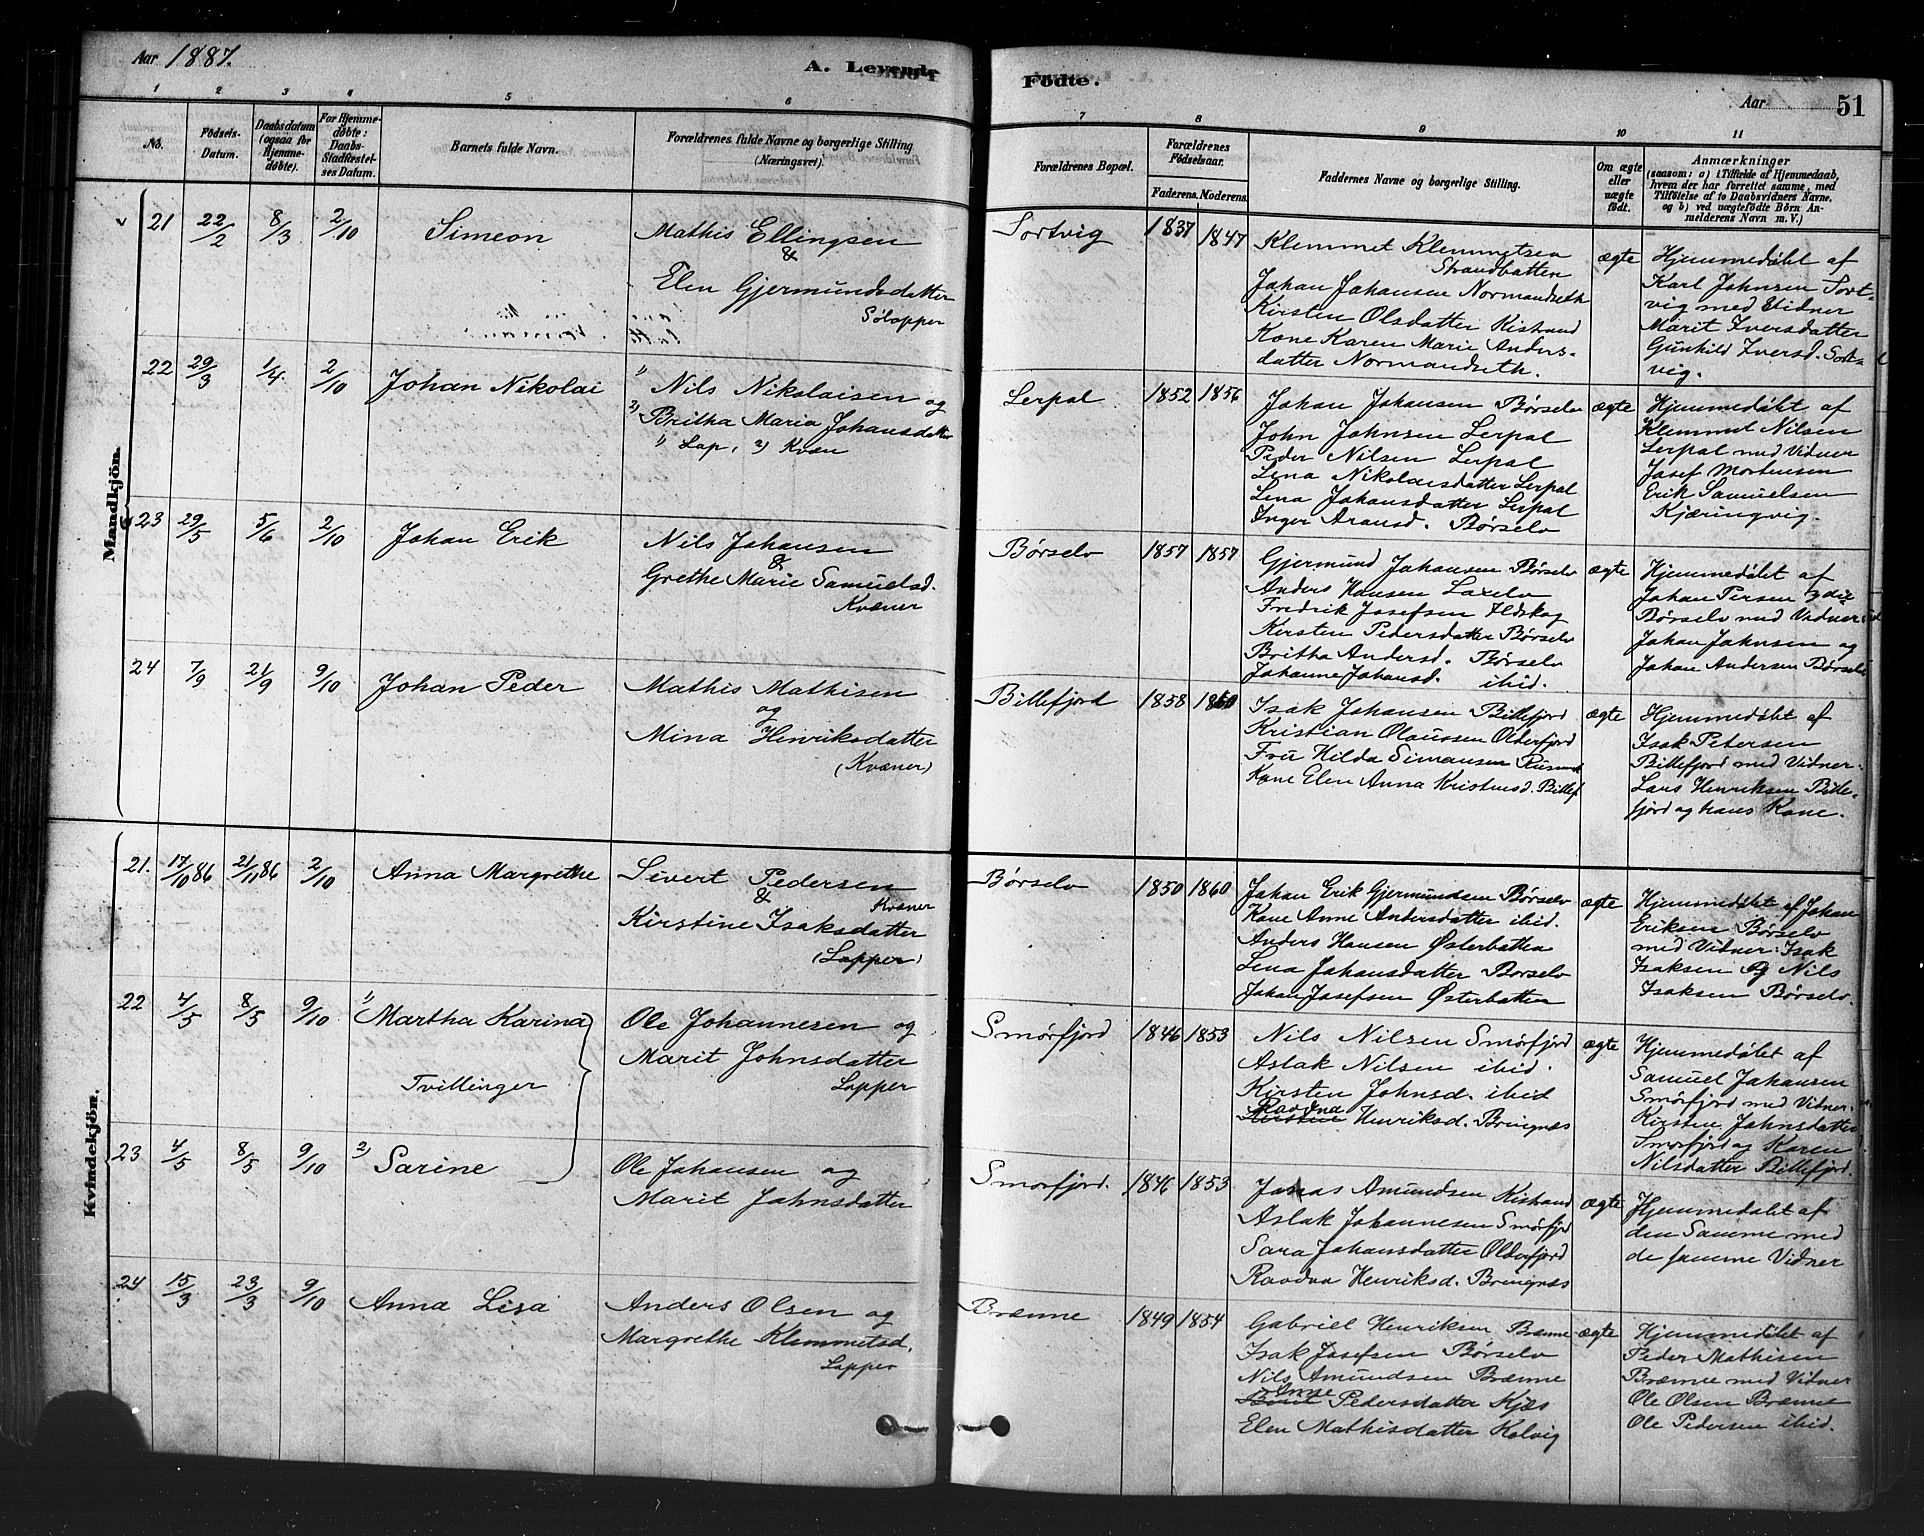 Aar 1887.
A. Levende Födte.
Aar
51
1 2 3 4 5 6 7 8 9 10 11
No.
Födsels-Datum.
Daabsdatum (ogsaa for Hjemmedøbte).
For Hjemmedøbte: Daabs-Stadfæstelses Datum.
Barnets fulde Navn.
Forældrenes fulde Navne og borgerlige Stilling (Næringsvei).
Forældrenes Bopæl.
Forældrenes Fødselsaar.
Faderens. Moderens.
Faddernes Navne og borgerlige Stilling.
Om ægte eller uægte født.
Anmærkninger
(saasom: a) i Tilfælde af Hjemmedaab,
hvem der har forrettet samme, med
Tilføielse af to Daabsvidners Navne,
og b) ved uægtefödte Börn An-
melderens Navn m. V.)
Mandkjön.
21 22/2 8/3 2/10 Simeon
Mathis Ellingsen
&
Elen Gjermundsdatter
SøLapper
Sortvig 1837 1847
Klemmet Klemmetsen
Strandbatten
Johan Johansen Normandseth
Kirsten Olsdatter Kistrand
Kone Karen Marie Anders-
datter Normandseth.
ægte
Hjemmedøbt af
Karl Johnsen Sort-
vig med Vidner
Marit Iversdatter
Gunhild Iversd. Sort-
vig.
22 29/3 1/4. 2/10 Johan Nikolai
1) Nils Nikolaisen og
2) Britha Maria Johansdatter
1) Lap, 2) Kvæn
Lerpol 1852 1856
Johan Johansen Børselv
John Johnsen Lerpol
Peder Nilsen Lerpol
Lena Nikolaisdatter Lerpol
Lena Johansdatter Lerpol
Inger Aronsd. Børselv
ægte
Hjemmedøbt af
Klemmet Nilsen
Lerpol med Vidner
Josef Mortensen
Erik Samuelsen
Kjæringvig.
23 29/5 5/6 2/10 Johan Erik
Nils Johansen
&
Grethe Marie Samuelsd.
Kvæner
Børselv 1857 1857
Gjermund Johansen Børselv
Anders Hansen Laxelv
Fredrik Josefsen Ildskog
Kirsten Pedersdatter Børselv
Britha Andersd. Børselv
Johanne Johansd. ibid.
ægte
Hjemmedøbt af
Johan Persen
Børselv med Vidner
Johan Johnsen og
Johan Andersen Børselv
24 7/9 21/9 9/10 Johan Peder
Mathis Mathisen
og
Mina Henriksdatter
(Kvæner)
Billefjord 1858 1860
Isak Johansen Billefjord
Kristian Olaussen Olderfjord
Fru Hilda Simonsen
Kone Elen Anna Kristensd. Billef
ægte
Hjemmedøbt af
Isak Petersen
Billefjord med Vidner
Lars Henriksen Bille-
fjord og hans Kone.
Kvindekjön.
21. 17/10 86 21/11 86 2/10 Anna Margrethe
Sivert Pedersen
& Kvæner
Kirstine Isaksdatter
(Lapper)
Børselv 1850 1860
Johan Erik Gjermundsen Børselv
Kone Anne Andersdatter ibid.
Anders Hansen Østerbatten
Lena Johansdatter Børselv
Johan Josefsen Østerbatten
ægte
Hjemmedøbt af Johan
Eriksen Børselv
med Vidner: Isak
Isaksen og Nils
Isaksen Børselv.
22 4/5 8/5 9/10 1) Martha Karina
Tvillinger
Ole Johannesen og
Marit Johnsdatter
Lapper
Smørfjord 1846 1853
Nils Nilsen Smørfjord
Aslak Nilsen ibid.
Kirsten Johnsd. ibid
Raavna
Kirsten Henriksd. Bringnæs
ægte
Hjemmedøbt af
Samuel Johansen
Smørfjord med Vidner
Kirsten Johnsdatter
Smørfjord og Karen
Nilsdatter Billefjord.
23 4/5 8/5 9/10 2) Sarine
Ole Johansen og
Marit Johnsdatter
Smørfjord. 1846 1853
Jonas Amundsen Kistrand
Aslak Johannesen Smørfjord
Sara Johansdatter Olderfjord
Raavna Henriksd. Bringnæs
ægte
Hjemmedøbt af
den Samme med
de samme Vidner
24 15/3 23/3 9/10 Anna Lisa
Anders Olsen og
Margrethe Klemmetsd.
Lapper
Brænne 1849 1854
Gabriel Henriksen Brænne
Isak Josefsen Børselv
Nils Amundsen Brænne
Pedersdatter Kjæs
Elen Mathisdatter Kolvig
ægte
Hjemmedøbt af
Peder Mathisen
Brænne med Vidner
Ole Olsen Brænne
Ole Pedersen ibid.